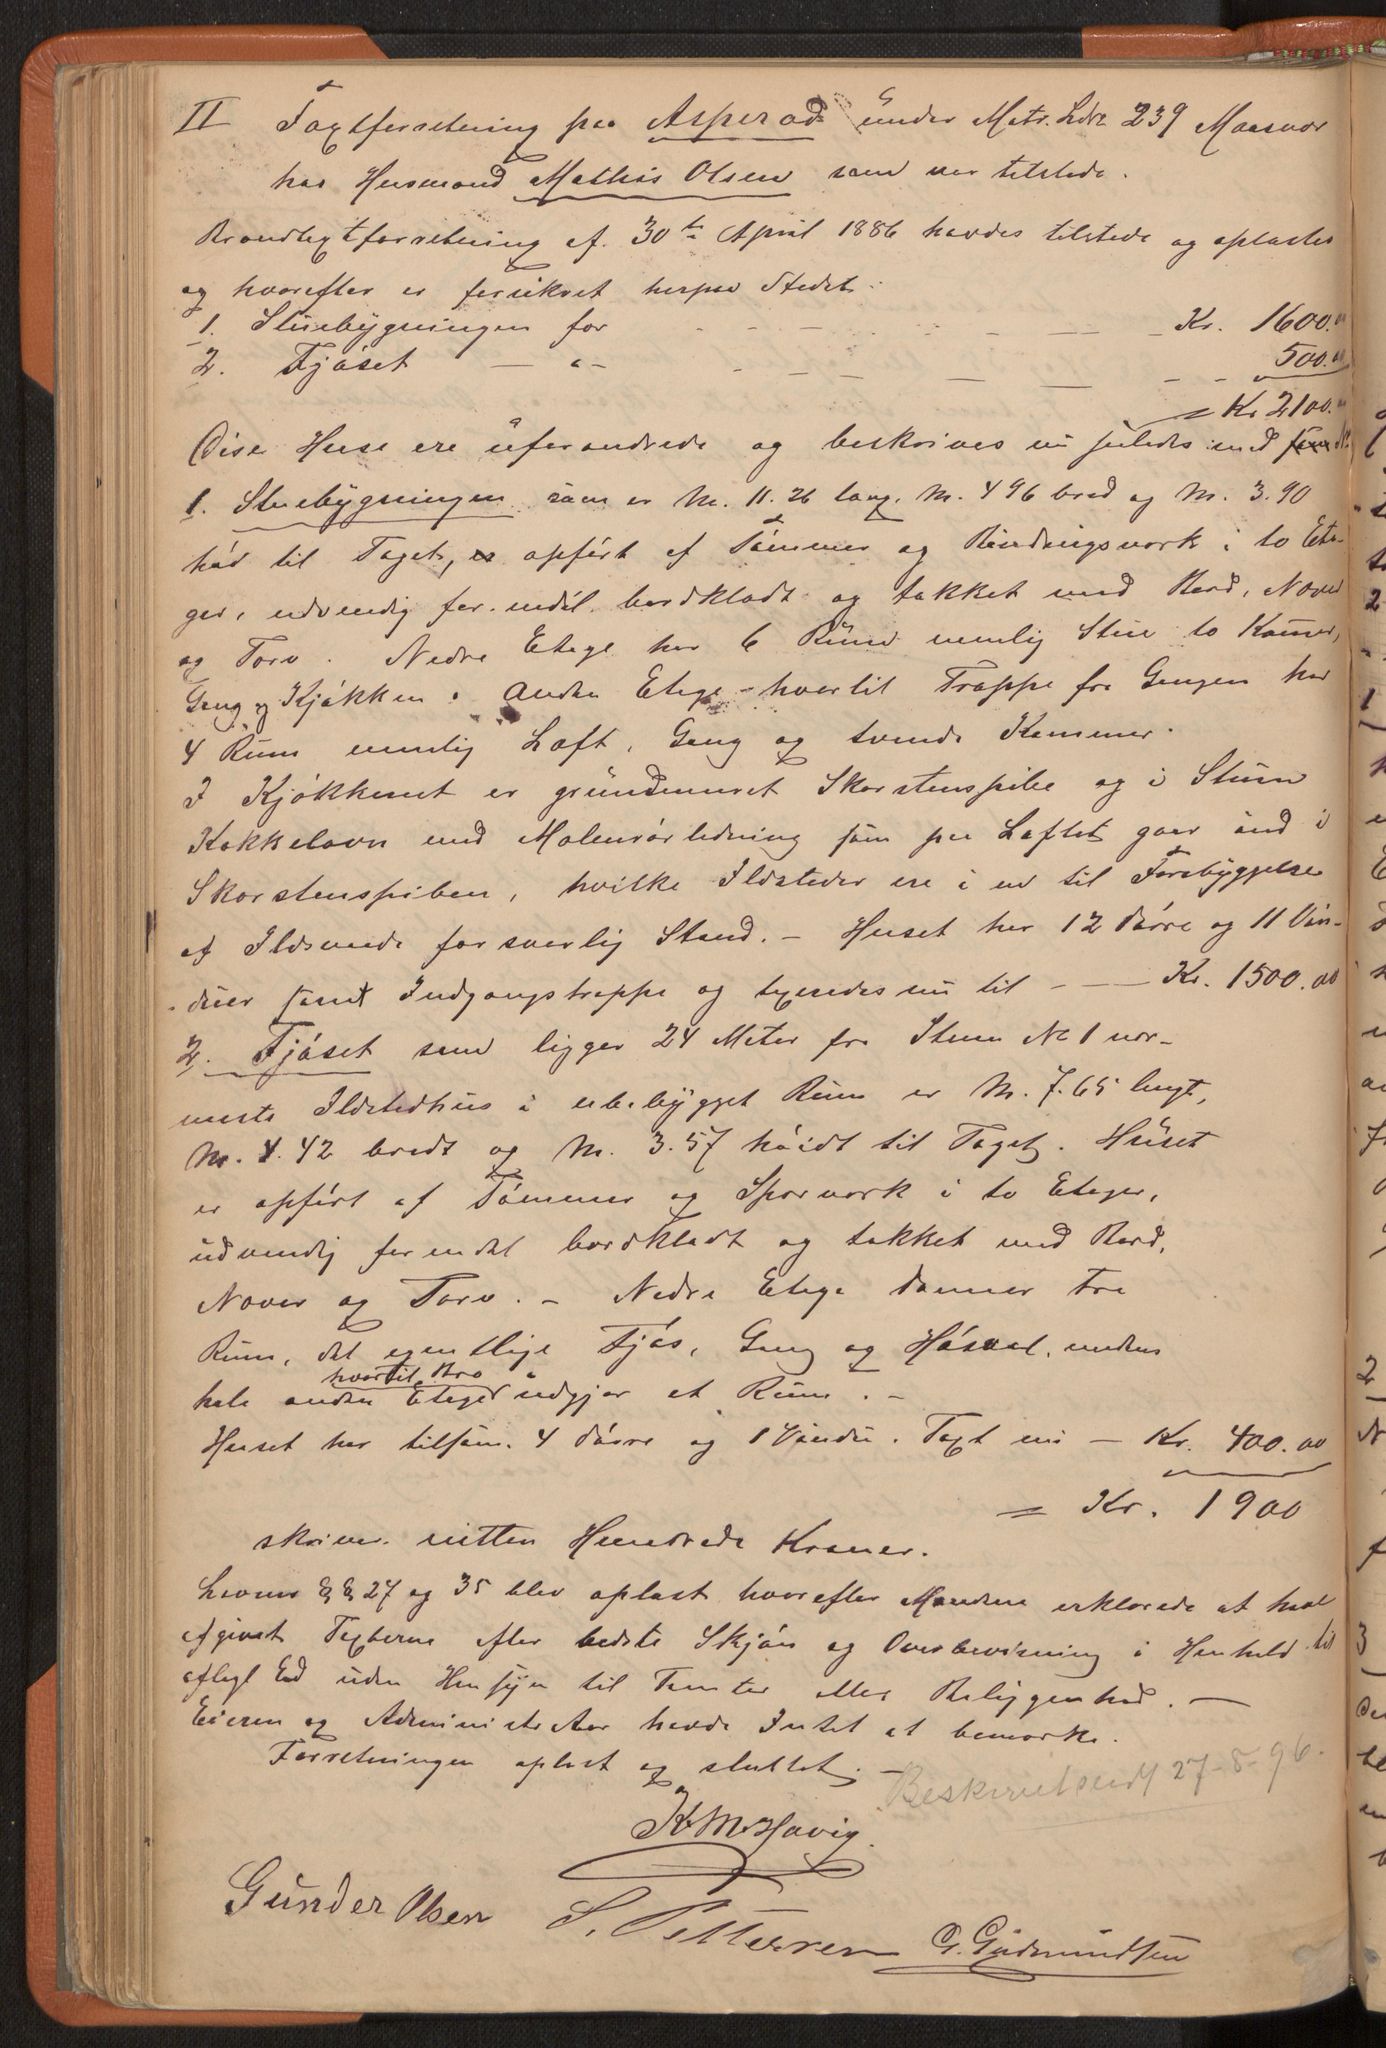 II Taxtforretning paa Asperød under Matr. Lbre 239 Maasvær
hos Husmand Mathis Olsen som var tilstede.
Brandtaxtforretning af 30te April 1886 havdes tilstede og oplæstes
og hvorefter er forsikret herpaa Stedet:
1. Stuebygningen for - - - - - Kr. 1600.00
2. Fjøset - "- - - - - 500.00
= Kr 2100.00
Disse Huse ere uforandrede og beskrives nu saaledes med
1. Stuebygningen som er M. 11.26 lang, M. 4 96 bred og M. 3.90
høi til Taget, er opført af Tømmer og Bindingsværk i to Eta-
ger, udvendig for endel bordklædt og tækket med Bord, Næver
og Torv. Nedre Etage har 6 Rum nemlig Stue to Kamer,
Gang og Kjøkken. Anden Etage hvortil Trappe fra Gangen har
4 Rum nemlig Loft, Gang og tvende Kammer.
I Kjøkkenet er grundmuret Skorstenspibe og i Stuen
Kakkelovn med Malmrørledning som paa Loftet gaar ind i
Skorstenspiben, hvilke Ildsteder ere i en til Forebyggelse
af Ildsvaade forsvarlig Stand. - Huset har 12 Dørre og 11 Vin-
duer samt Indgangstrappe og taxeredes nu til - - Kr. 1500.00
2. Fjøset som ligger 24 Meter fra Stuen No 1 nær-
meste Ildstedhus i ubebygget Rum er M. 7.65 langt,
M. 4.42 bredt og M. 3.57 høidt til Taget. Huset
er opført af Tømmer og Sporværk i to Etager,
udvendig for endel bordklædt og tækket med Bord,
Næver og Torv. - Nedre Etage danner tre
Rum, det egentlige Fjøs, Gang og Høsval, medens
hvortil Bro
hele anden Etage udgjør et Rum. -
Huset har tilsam. 4 Dørre og 1 Vindu. Taxt nu - Kr. 400.00
= Kr. 1900
skriver nitten Hundrede Kroner.
Lovens §§ 27 og 35 blev oplæst hvorefter Mændene erklærede at have
afgivet Taxterne efter bedste Skjøn og Overbevisning i Henhold til
aflagt Ed uden Hensyn til Tomter eller Beliggenhed. -
Eieren og Administrator havde Intet at bemærke.
Forretningen oplæst og sluttet. -
Beskrivel sendt 27-8-96.
K M Havig
Gunder Olsen S. Pettersen G. Gudmundsen